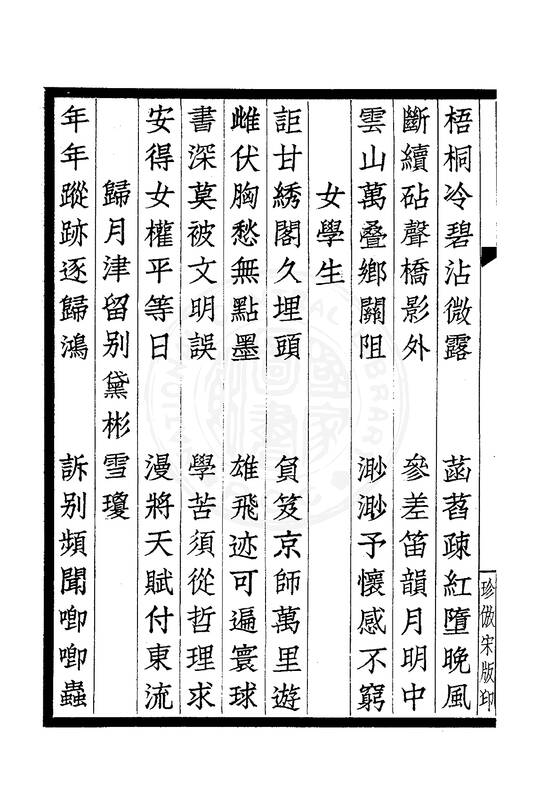 梧桐冷碧沾微露　菡萏疎紅墮晚風
斷續砧聲橋影外　參差笛韻月明中
雲山萬疊鄉關阻　渺渺予懷感不窮
女學生
詎甘綉閣久埋頭　負笈京師萬里遊
雌伏胸愁無點墨　雄飛迹可遍寰球
書深莫被文明誤　學苦須從哲理求
安得女權平等日　漫將天賦付東流
歸月津留别黛彬雪瓊
年年蹤跡逐歸鴻　訴别頻聞唧唧蟲
珍倣宋版印